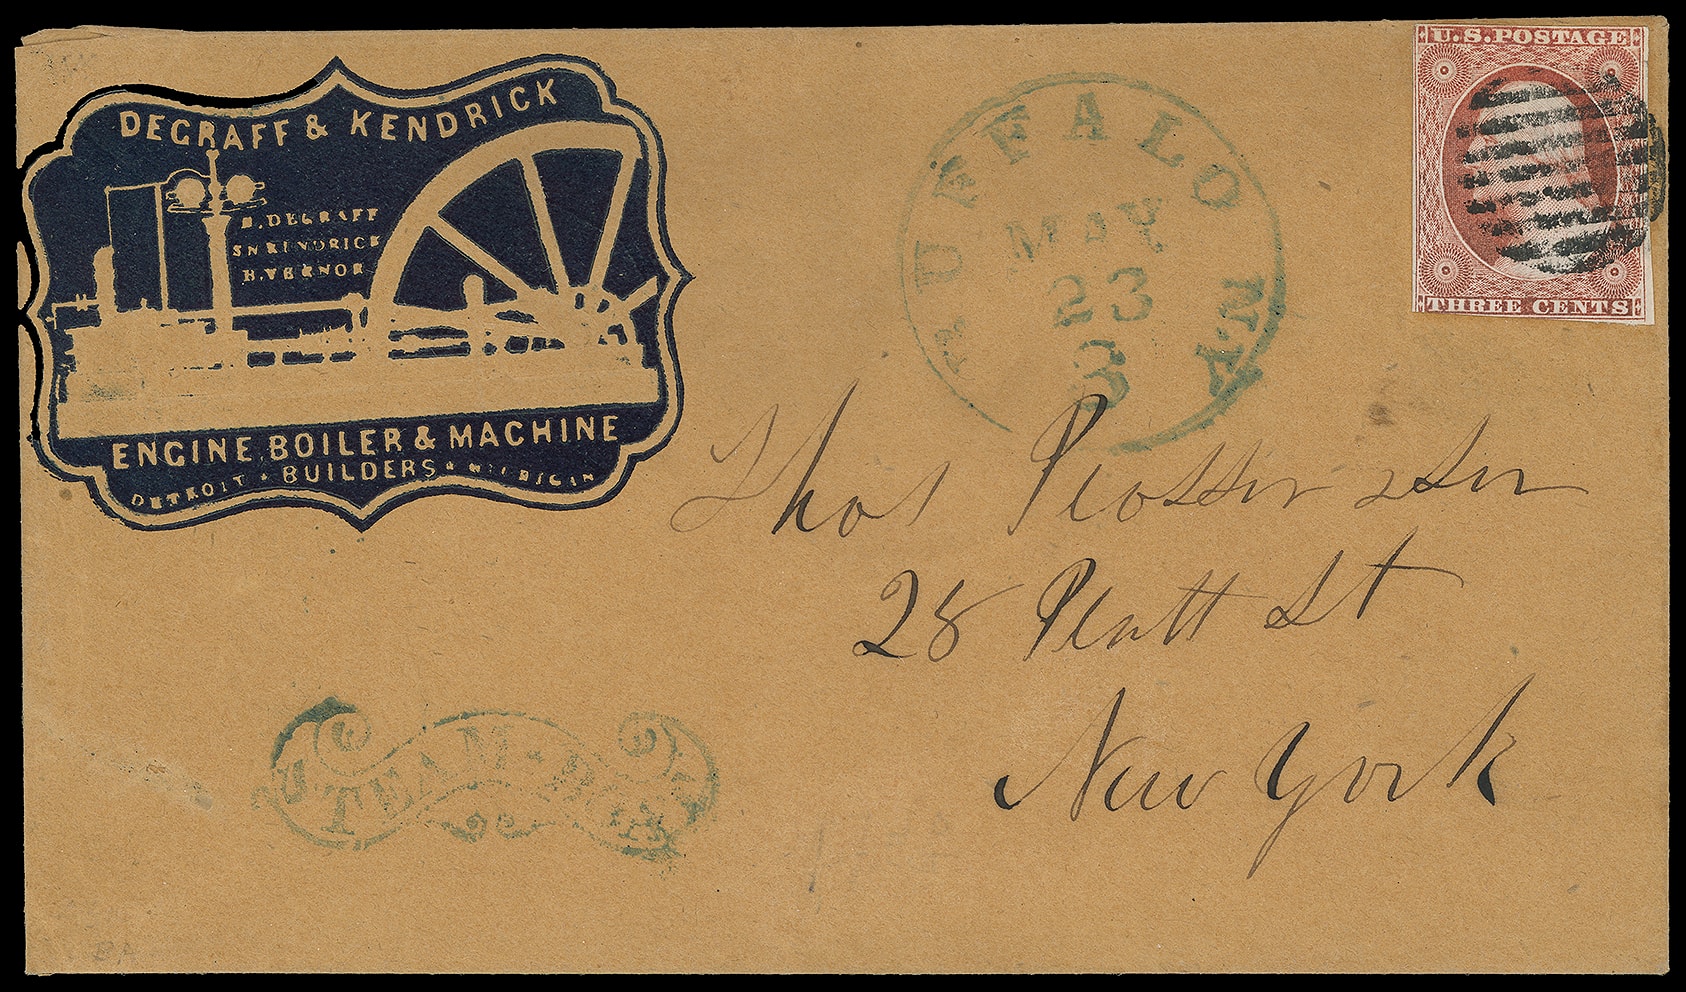 DEGRAFF & KENDRICK
H. DEGRAFF
S N KENDRICK
H. VERNOR
ENGINE, BOILER & MACHINE
BUILDERS
DETROIT MICHIGAN
BUFFALO N.Y.
MAY
23
3
U.S. POSTAGE
THREE CENTS
Thos Prosser & Son
28 Platt St
New York
STEAM-BOAT